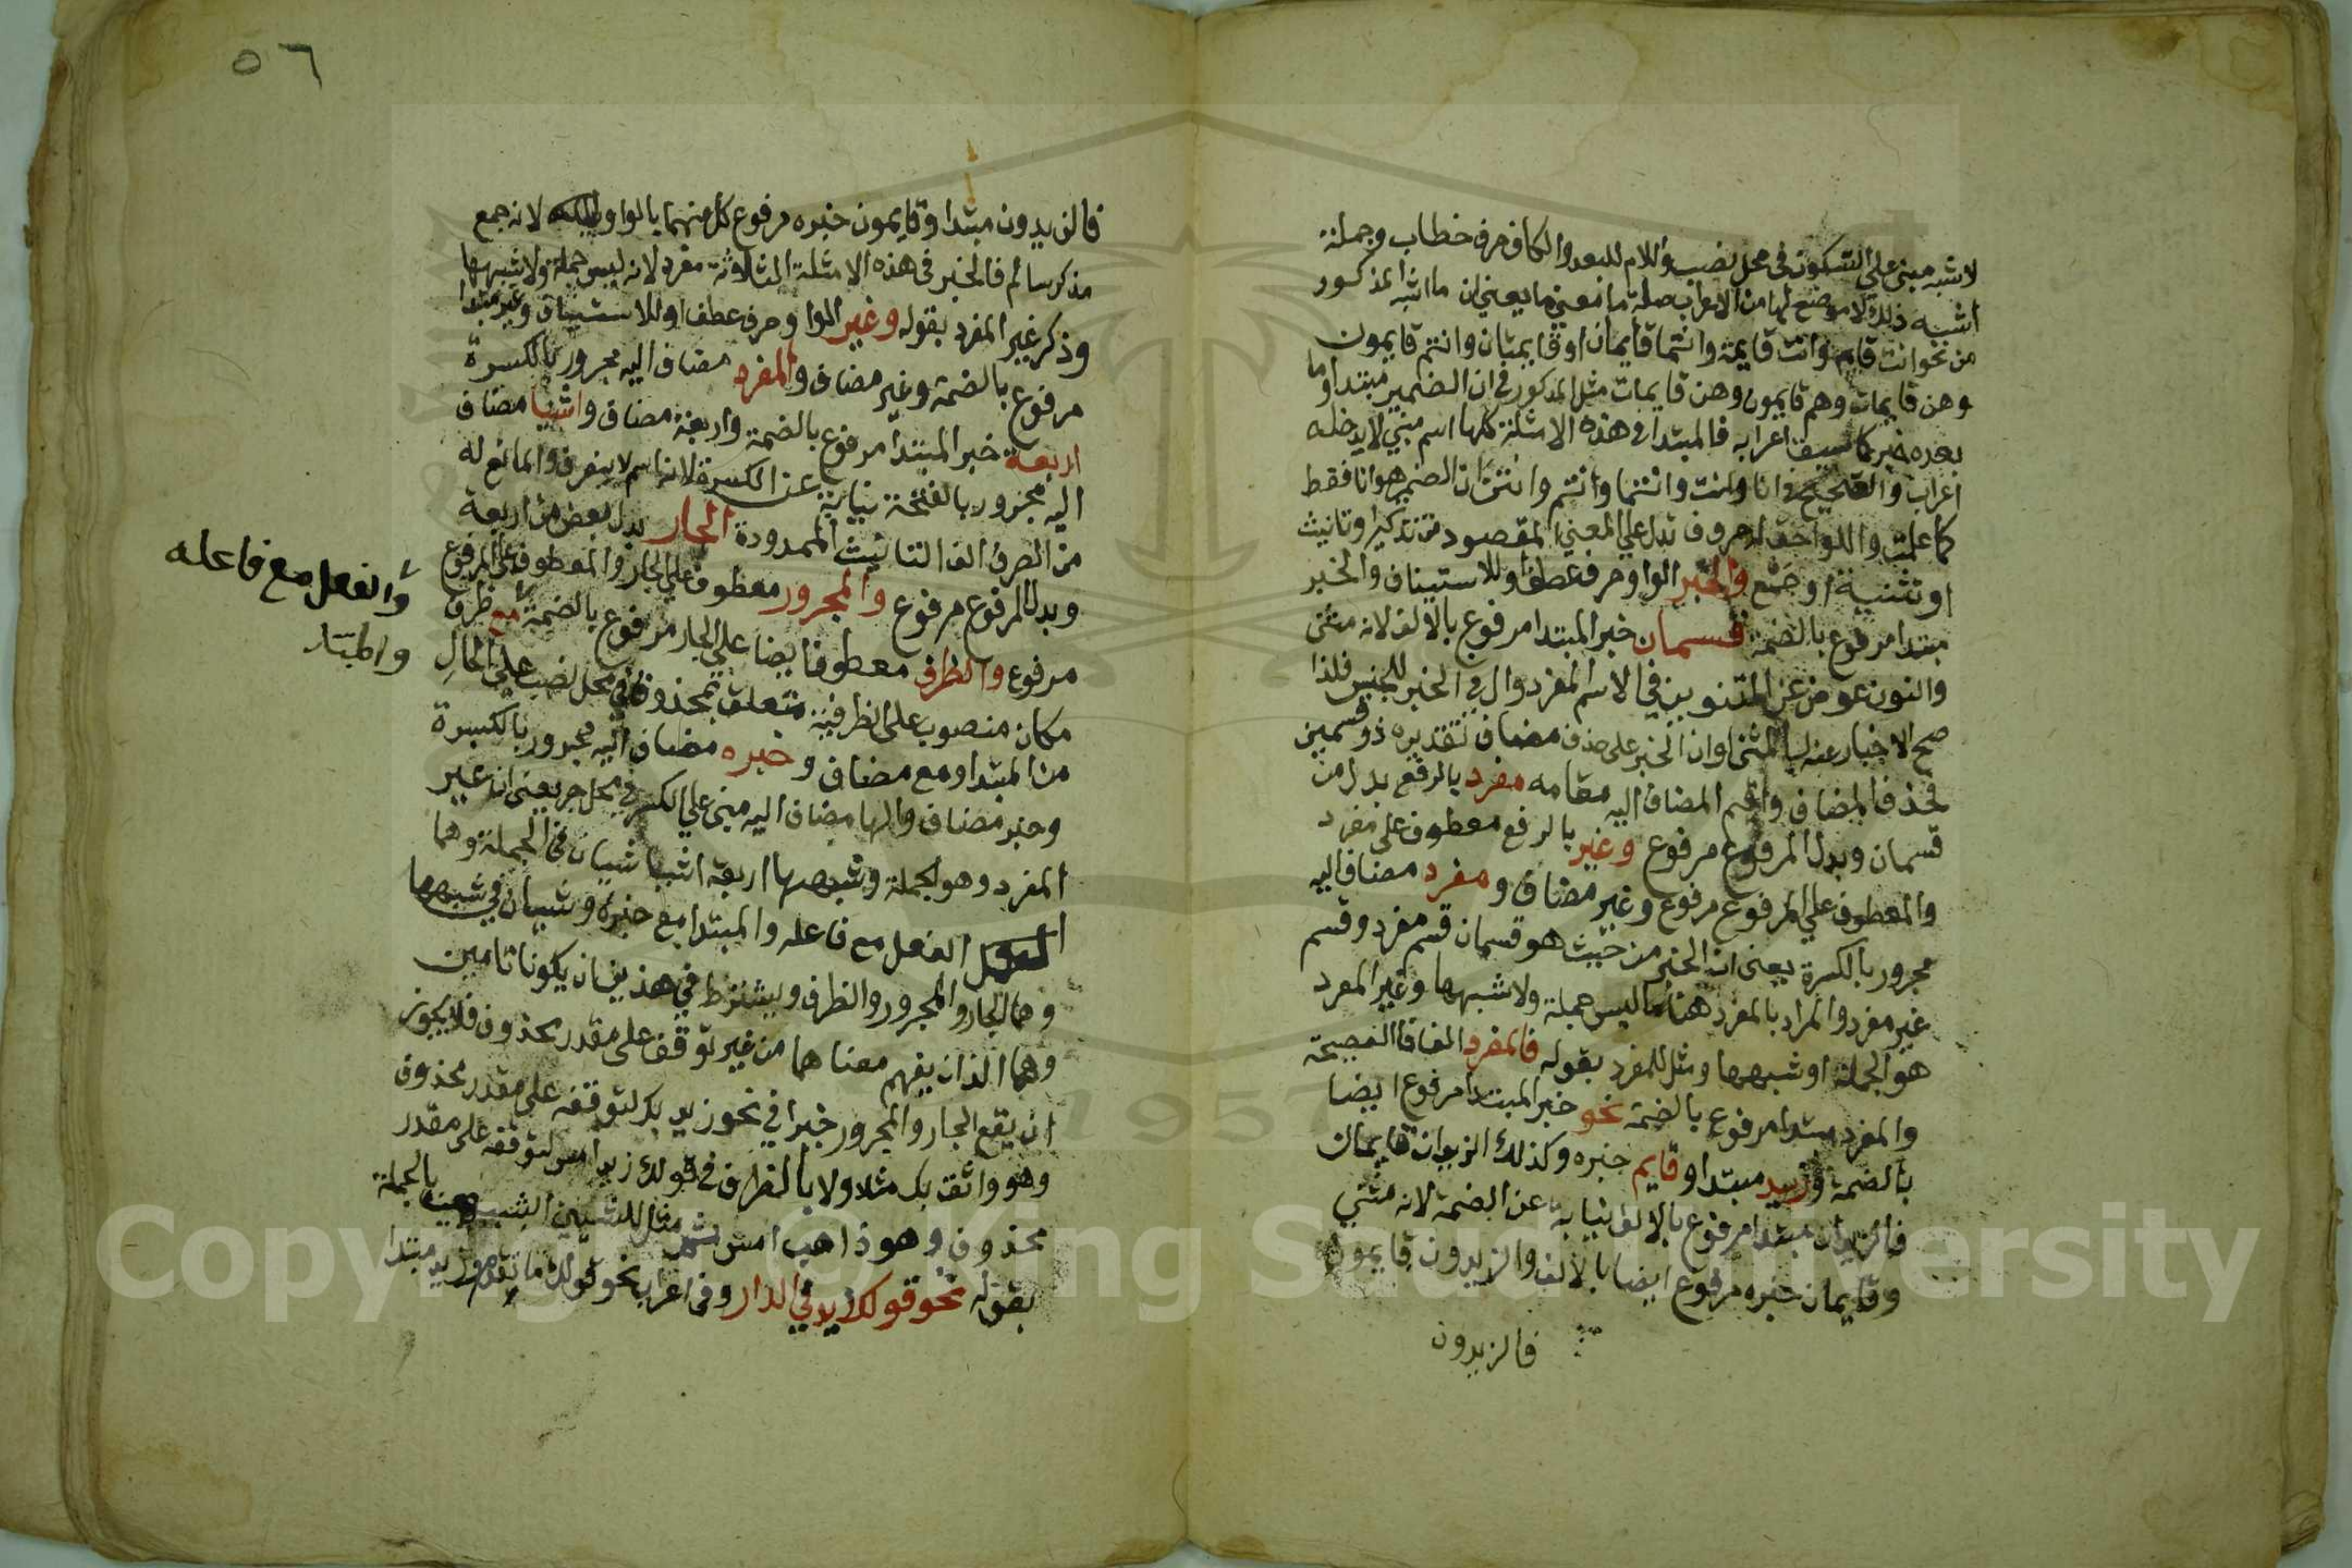 لاشبه مبني على السكون في محل نصب واللام للبعد والكاف حرف خطاب وجملة
اشبه ذلك لا موضع لها من الاعراب صلة ما نعني ما يعني ان ما اشبه المذكور
من نحو انت قايم وانت قايمة وانتما قايمان او قايمتان وانتم قايمون
وهن قايمات وهم قايمون وهن قايمات مثل المذكور في ان الضمير مبتدا وما
بعده خبر كما سبق اعرابه فالمبتدا في هذه الامثلة كلها اسم مبني لا يدخله
اعراب والصحيح في انا وانت وانتما وانتم وانتن ان الضمير هو انا فقط
كما علمت واللواحق له حروف تدل على المعنى المقصود من تذكير او تانيث
او تثنية او جمع والخبر الواو حرف عطف او للاستيناف والخبر
مبتدا مرفوع بالضمة قسمان خبر المبتدا مرفوع بالالف لانه مثنى
والنون عوض عن التنوين في الاسم المفرد وال في الخبر للجنس فلذا
صح الاخبار عنه بالمثنى او ان الخبر على حذف مضاف تقديره ذو قسمين
فحذف المضاف واقيم المضاف اليه مقامه مفرد بالرفع بدل من
قسمان وبدل المرفوع مرفوع وغير بالرفع معطوف على مفرد
والمعطوف على المرفوع مرفوع وغير مضاف ومفرد مضاف اليه
مجرور بالكسرة يعني ان الخبر من حيث هو قسمان قسم مفرد وقسم
غير مفرد والمراد بالمفرد هنا ما ليس جملة ولا شبهها وغير المفرد
هو الجملة او شبهها ومثل للمفرد بقوله فالمفرد الفا فا الفصيحة
والمفرد مبتدا مرفوع بالضمة نحو خبر المبتدا مرفوع ايضا
بالضمة وزيد مبتدا وقايم خبره وكذلك الزيدان قايمان
فالزيدان مبتدا مرفوع بالالف نيابة عن الضمة لانه مثنى
وقايمان خبره مرفوع ايضا بالالف والزيدون قايمون
فالزيدون
٥٦
فالزيدون مبتدا وقايمون خبره مرفوع كل منهما بالواو لانه جمع
مذكر سالم فالخبر في هذه الامثلة الثلاثة مفرد لانه ليس جملة ولا شبهها
وذكر غير المفرد بقوله وغير الواو حرف عطف او للاستيناف وغير مبتدا
مرفوع بالضمة وغير مضاف والمفرد مضاف اليه مجرور بالكسرة
اربعة خبر المبتدا مرفوع بالضمة واربعة مضاف واشيا مضاف
اليه مجرور بالفتحة نيابة عن الكسرة لانه اسم لا ينصرف والمانع له
من الصرف الف التانيث الممدودة الجار بدل بعض من اربعة
وبدل المرفوع مرفوع والمجرور معطوف على الجار والمعطوف على المرفوع
مرفوع والظرف معطوف ايضا على الجار مرفوع بالضمة مع ظرف
والفعل مع فاعله
والمبتدا
مكان منصوب على الظرفية متعلق بمحذوف في محل نصب على الحال
من المبتدا ومع مضاف وخبره مضاف اليه مجرور بالكسرة
وخبر مضاف والها مضاف اليه مبني على الكسر في محل جر يعني ان غير
المفرد وهو الجملة وشبهها اربعة اشيا شيان في الجملة وهما
الفعل مع فاعله والمبتدا مع خبره وشيان في شبهها
وهما الجار والمجرور والظرف ويشترط في هذين ان يكونا تامين
وهما اللذان يفهم معناهما من غير توقف على مقدر محذوف فلا يجوز
ان يقع الجار والمجرور خبرا في نحو زيد بك لتوقفه على مقدر محذوف
وهو واثق بك مثلا ولا بالظرف في قولك زيد امس لتوقفه على مقدر
محذوف وهو ذاهب امس مثل للشيين بالجملة
بقوله نحو قولك زيد في الدار وفي اعراب نحو قولك ما تقدم وزيد مبتدا